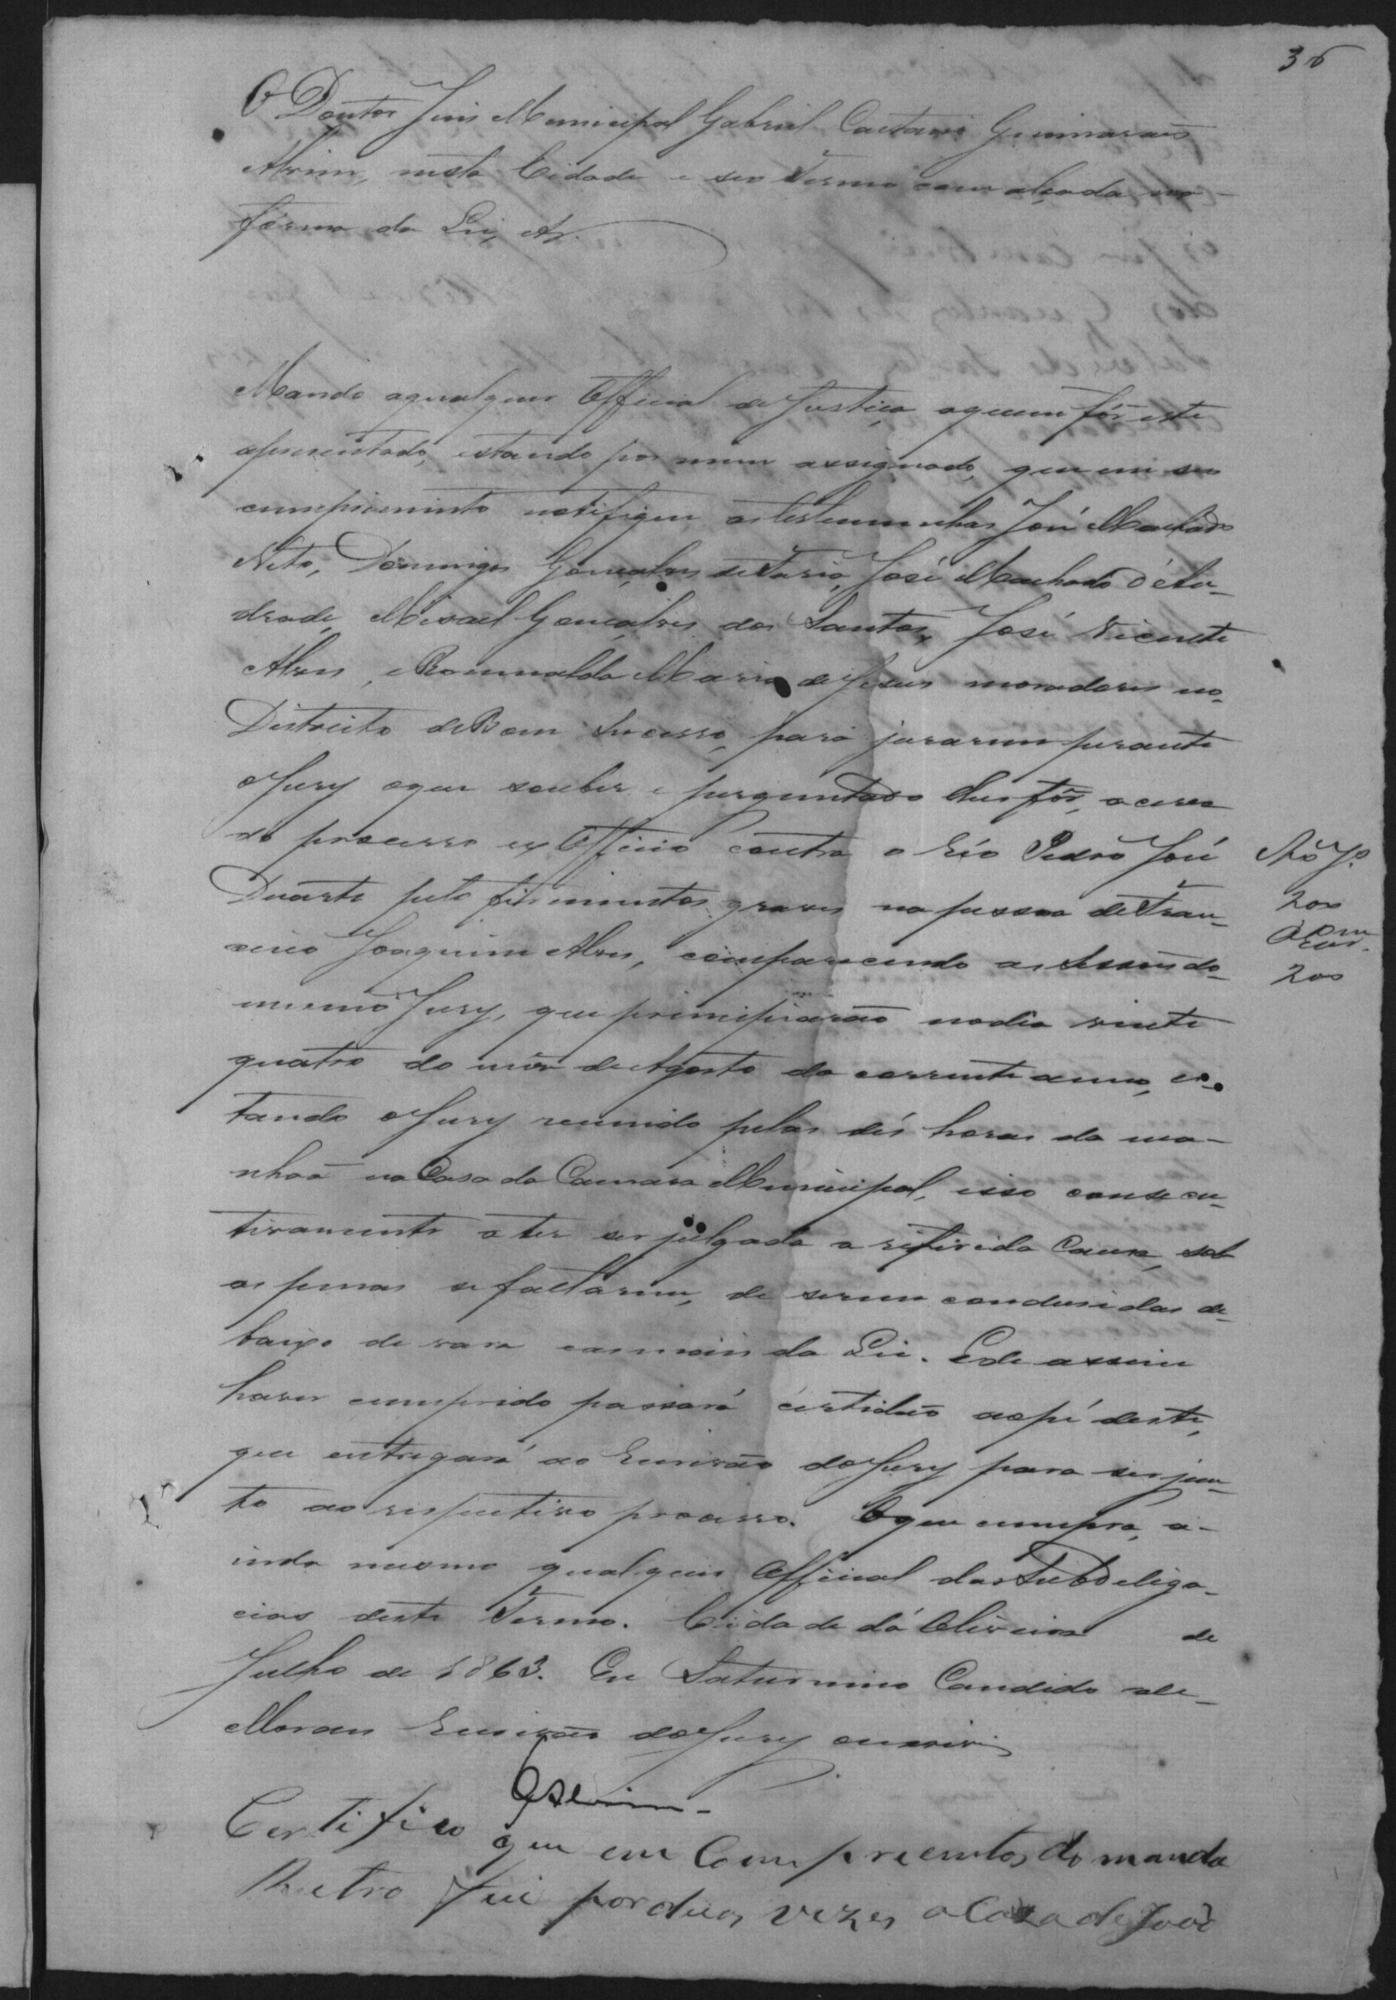 36
O Doutor Juis Municipal Gabriel Caetano Guimaraens
Alvim, nesta Cidade e seo Termo com alçada na
fórma da Lei, &.
Mando aqualquer Official de Justiça aquem fôr este
apresentado, estando por mim assignado, que em seo
cumprimento notifique as testemunhas José Machado
Neto, Domingos Gonçalves de Faria, José Machado d'An-
drade, Misael Gonçalves dos Santos, José Vicente
Alves, e Romualdo Maria de Jesus moradores no
Districto de Bom Sucesso, para jurarem perante
o Jury o que souber e perguntado lhes fôr, acerca
do processo ex Officio contra o Réo Pedro José
Duarte pelo ferimentos graves na pessoa de Fran-
cisco Joaquim Alves, comparecendo as Sessões do
mesmo Jury, que principiarão no dia vinte
quatro do mês de Agosto do corrente anno, es-
tando o Jury reunido pelas dés horas da ma-
nhaã na Casa da Camara Municipal, isso consecu-
tivamente a té ser julgada a referida Causa, sob
as penas se faltarem, de serem condusidas de-
baixo de vara e as mais da Lei. E de assim
haver cumprido passará certidão ao pé deste,
que entregará ao Escrivão do Jury para ser jun-
to ao respectivo processo. O que cumpra, a-
inda mesmo qualquer Official das Subdeliga-
cias deste Termo. Cidade dá Oliveira de
Julho de 1863. Eu Saturnino Candido de
Moraes Escrivão do Jury o escrevi
200
200
Alvim
Certifico que em Comprimentos do manda
Retro fui por duas vezes a Caza de João